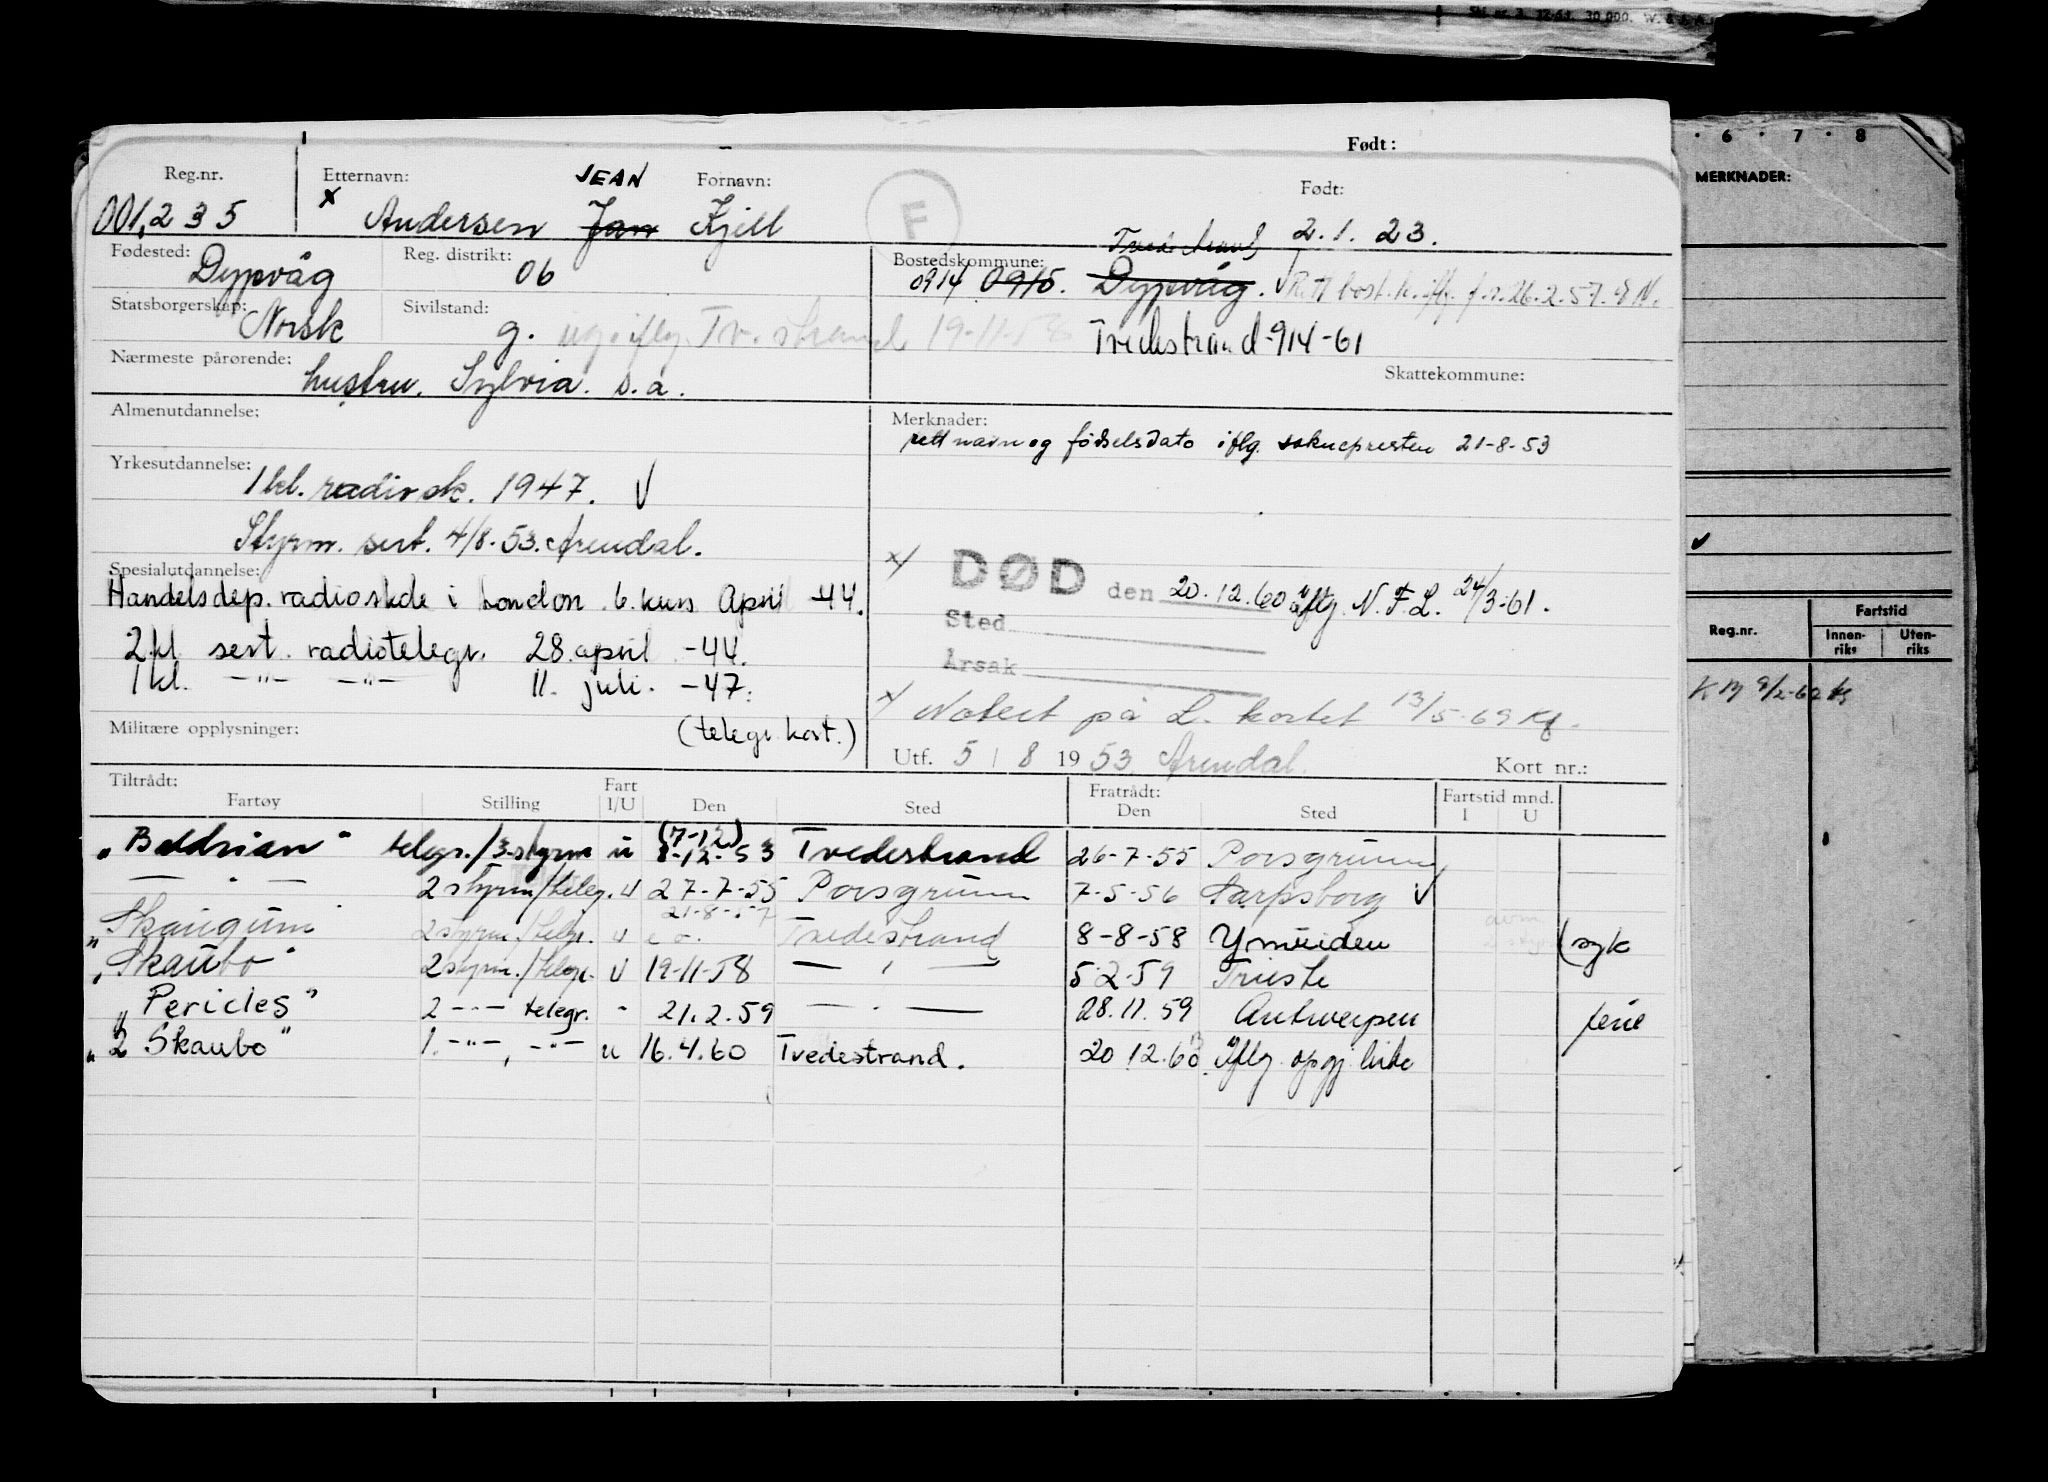 Født:
Reg.nr. Etternavn: JEAN Fornavn: Født:
001,235 x Andersen Jan Kjell F 2.1.23.
Fødested: Dypvåg Reg. distrikt: 06 Bostedskommune: Tvedestrand
0914 0915. Dypvåg. Rett bost.k. iflg. f.r. 26.2.57.
Statsborgerskap: Norsk Sivilstand: g. ug. iflg. Tv.strand 19-11-58 Tvedestrand-914-61
Nærmeste pårørende: hustru. Sylvia. s.a. Skattekommune:
Almenutdannelse:
Merknader:
rett navn og fødselsdato iflg. soknepresten 21-8-53
Yrkesutdannelse: 1 kl. radiosk. 1947. V
Styrm. sert. 4/8-53. Arendal.
Spesialutdannelse:
Handelsdep. radioskole i London 6. kurs April -44.
2 kl. sert. radiotelegr. 28. april -44.
1 kl. -"- -"- 11. juli. -47.
Militære opplysninger: (telegr. kort.)
x/ DØD den 20.12.60 iflg. N.F.L. 24/3-61.
Sted
Årsak
x/ Notert på L. kortet 13/5-69 Kf.
Utf. 5 / 8 1953 Arendal. Kort nr.:
Tiltrådt: Fratrådt:
Fartøy Stilling Fart I/U Den Sted Den Sted Fartstid mnd. I U
"Baldrian" telegr./3.styrm u (7-12) 8-12-53 Tvedestrand 26-7-55 Porsgrunn
— " — 2 styrm/teleg. u 27-7-55 Porsgrunn 7-5-56 Sarpsborg V
"Skaugum" 2 styrm./telgr. u 21-8-57 e.o. Tvedestrand 8-8-58 Ymuiden (syk
"Skaubo" 2 styrm./telgr. u 19-11-58 — " — 5-2-59 Trieste
"Pericles" 2 -"- telegr. " 21.2.59 — " — 28.11.59 Antwerpen ferie
"2 Skaubo" 1. -"-, -"- u 16.4.60 Tvedestrand. 20.12.60 iflg. opgj. liste
6 7 8
MERKNADER:
Reg.nr. Fartstid
Innen-riks Uten-riks